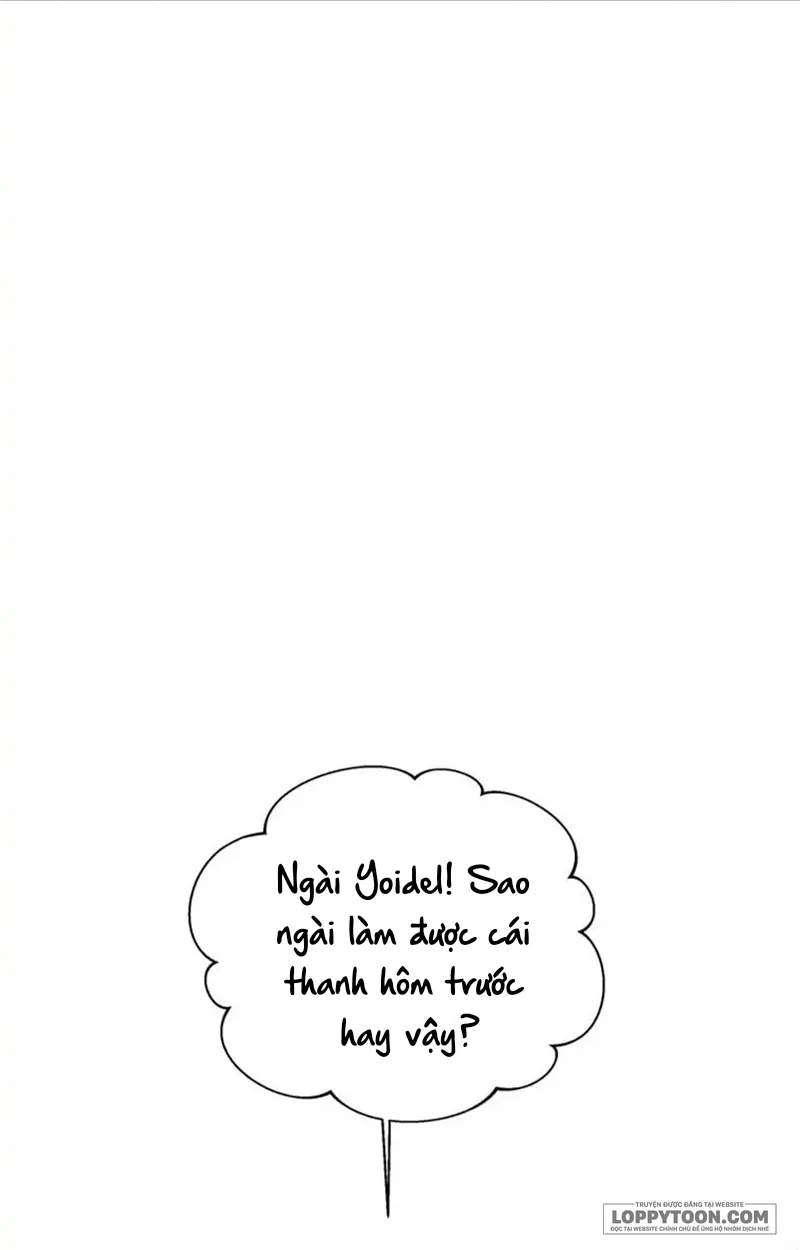 Ngài Yoidel! Sao
ngài làm được cái
thanh hôm trước
hay vậy?
TRUYỆN ĐƯỢC ĐĂNG TẠI WEBSITE
LOPPYTOON.COM
ĐỌC TẠI WEBSITE CHÍNH CHỦ ĐỂ ỦNG HỘ NHÓM DỊCH NHÉ